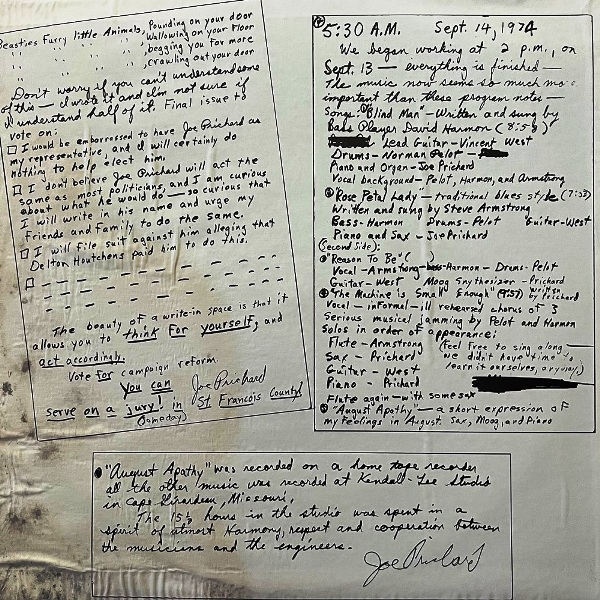 Beasties Furry little Animals, Pounding on your door
" " " " Wallowing on your Floor
" " " " begging you for more
" " " " crawling out your door
Don't worry if you can't understand some
of this — I wrote it and I'm not sure if
I understand half of it. Final issue to
vote on:
□ I would be embarrassed to have Joe Prichard as
my representative, and I will certainly do
nothing to help elect him.
□ I don't believe Joe Prichard will act the
same as most politicians, and I am curious
about what he would do — so curious that
I will write in his name and urge my
Friends and Family to do the same.
□ I will file suit against him alleging that
Delton Houtchens paid him to do this.
□
The beauty of a write-in space is that it
allows you to think For yourself, and
act accordingly.
Vote for campaign reform
You can
serve on a jury! in
(someday)
Joe Prichard
St Francois County!
5:30 A.M. Sept. 14, 1974
We began working at 2 p.m., on
Sept. 13 — everything is finished —
The music now seems so much more
important than these program notes —
Songs: "Blind Man" — Written and sung by
Bass Player David Harmon (8:5)
Lead Guitar - Vincent West
Drums - Norman Pelot -
Piano and Organ - Joe Prichard
Vocal background - Pelot, Harmon, and Armstrong
"Rose Petal Lady — traditional blues style (7:)
Written and sung by Steve Armstrong
Bass - Harmon Drums - Pelot Guitar - West
Piano and Sax - Joe Prichard
(Second Side):
"Reason To Be" ( )
Vocal - Armstrong Harmon - Drums - Pelot
Guitar - West Moog Snythesizer - Prichard
"The Machine is Small Enough" (9:57) written by Prichard
Vocal - informal - ill rehearsed chorus of 3
Serious musical jamming by Pelot and Harmon
Solos in order of appearance:
Flute - Armstrong (feel free to sing along —
Sax - Prichard we didn't have time to
Guitar - West learn it ourselves, anyway.)
Piano - Prichard
Flute again - with some sax
"August Apathy" — a short expression of
my feelings in August. Sax, Moog, and Piano
"August Apathy" was recorded on a home tape recorder
all the other music was recorded at Kendall-Lee Studio
in Cape Girardeau, Missouri.
The 15½ hours in the studio was spent in a
spirit of utmost Harmony, respect and cooperation between
the musicians and the engineers.
Joe Prichard